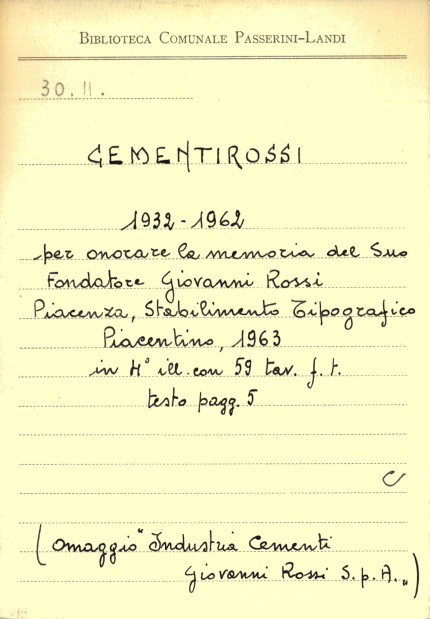 BIBLIOTECA COMUNALE PASSERINI-LANDI
30.11.
CEMENTIROSSI
1932-1962
per onorare la memoria del Suo
Fondatore Giovanni Rossi
Piacenza, Stabilimento Tipografico
Piacentino, 1963
in 4° ill. con 59 tav. f. t.
testo pagg. 5
C
(Omaggio "Industria Cementi
Giovanni Rossi S.p.A.")